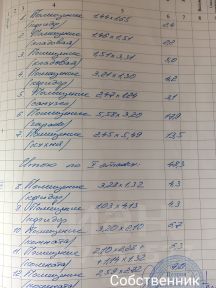 4 5
1. Помещение 1.44×1.65 2.4
(коридор)
Помещение 1.46×1.51 2.2
(кладовая)
3. Помещение 1.51×3.31 5.0
(кладовая)
4. Помещение 3.21×1.30 4.2
(коридор)
5. Помещение 2.47×1.24 3.1
(санузел)
6. Помещение 5.58×3.20 17.9
7. Помещение 2.45×5.49 13.5
(кухня)
Итого по I этажу: 48.3
8 Помещение 3.28×1.32 4.3
(коридор)
9 Помещение 1.03×4.13 4.3
(коридор)
10 Помещение 3.20×2.10 6.7
(комната)
11 Помещение
(комната)
12 Помещение
(комната)
Собственник